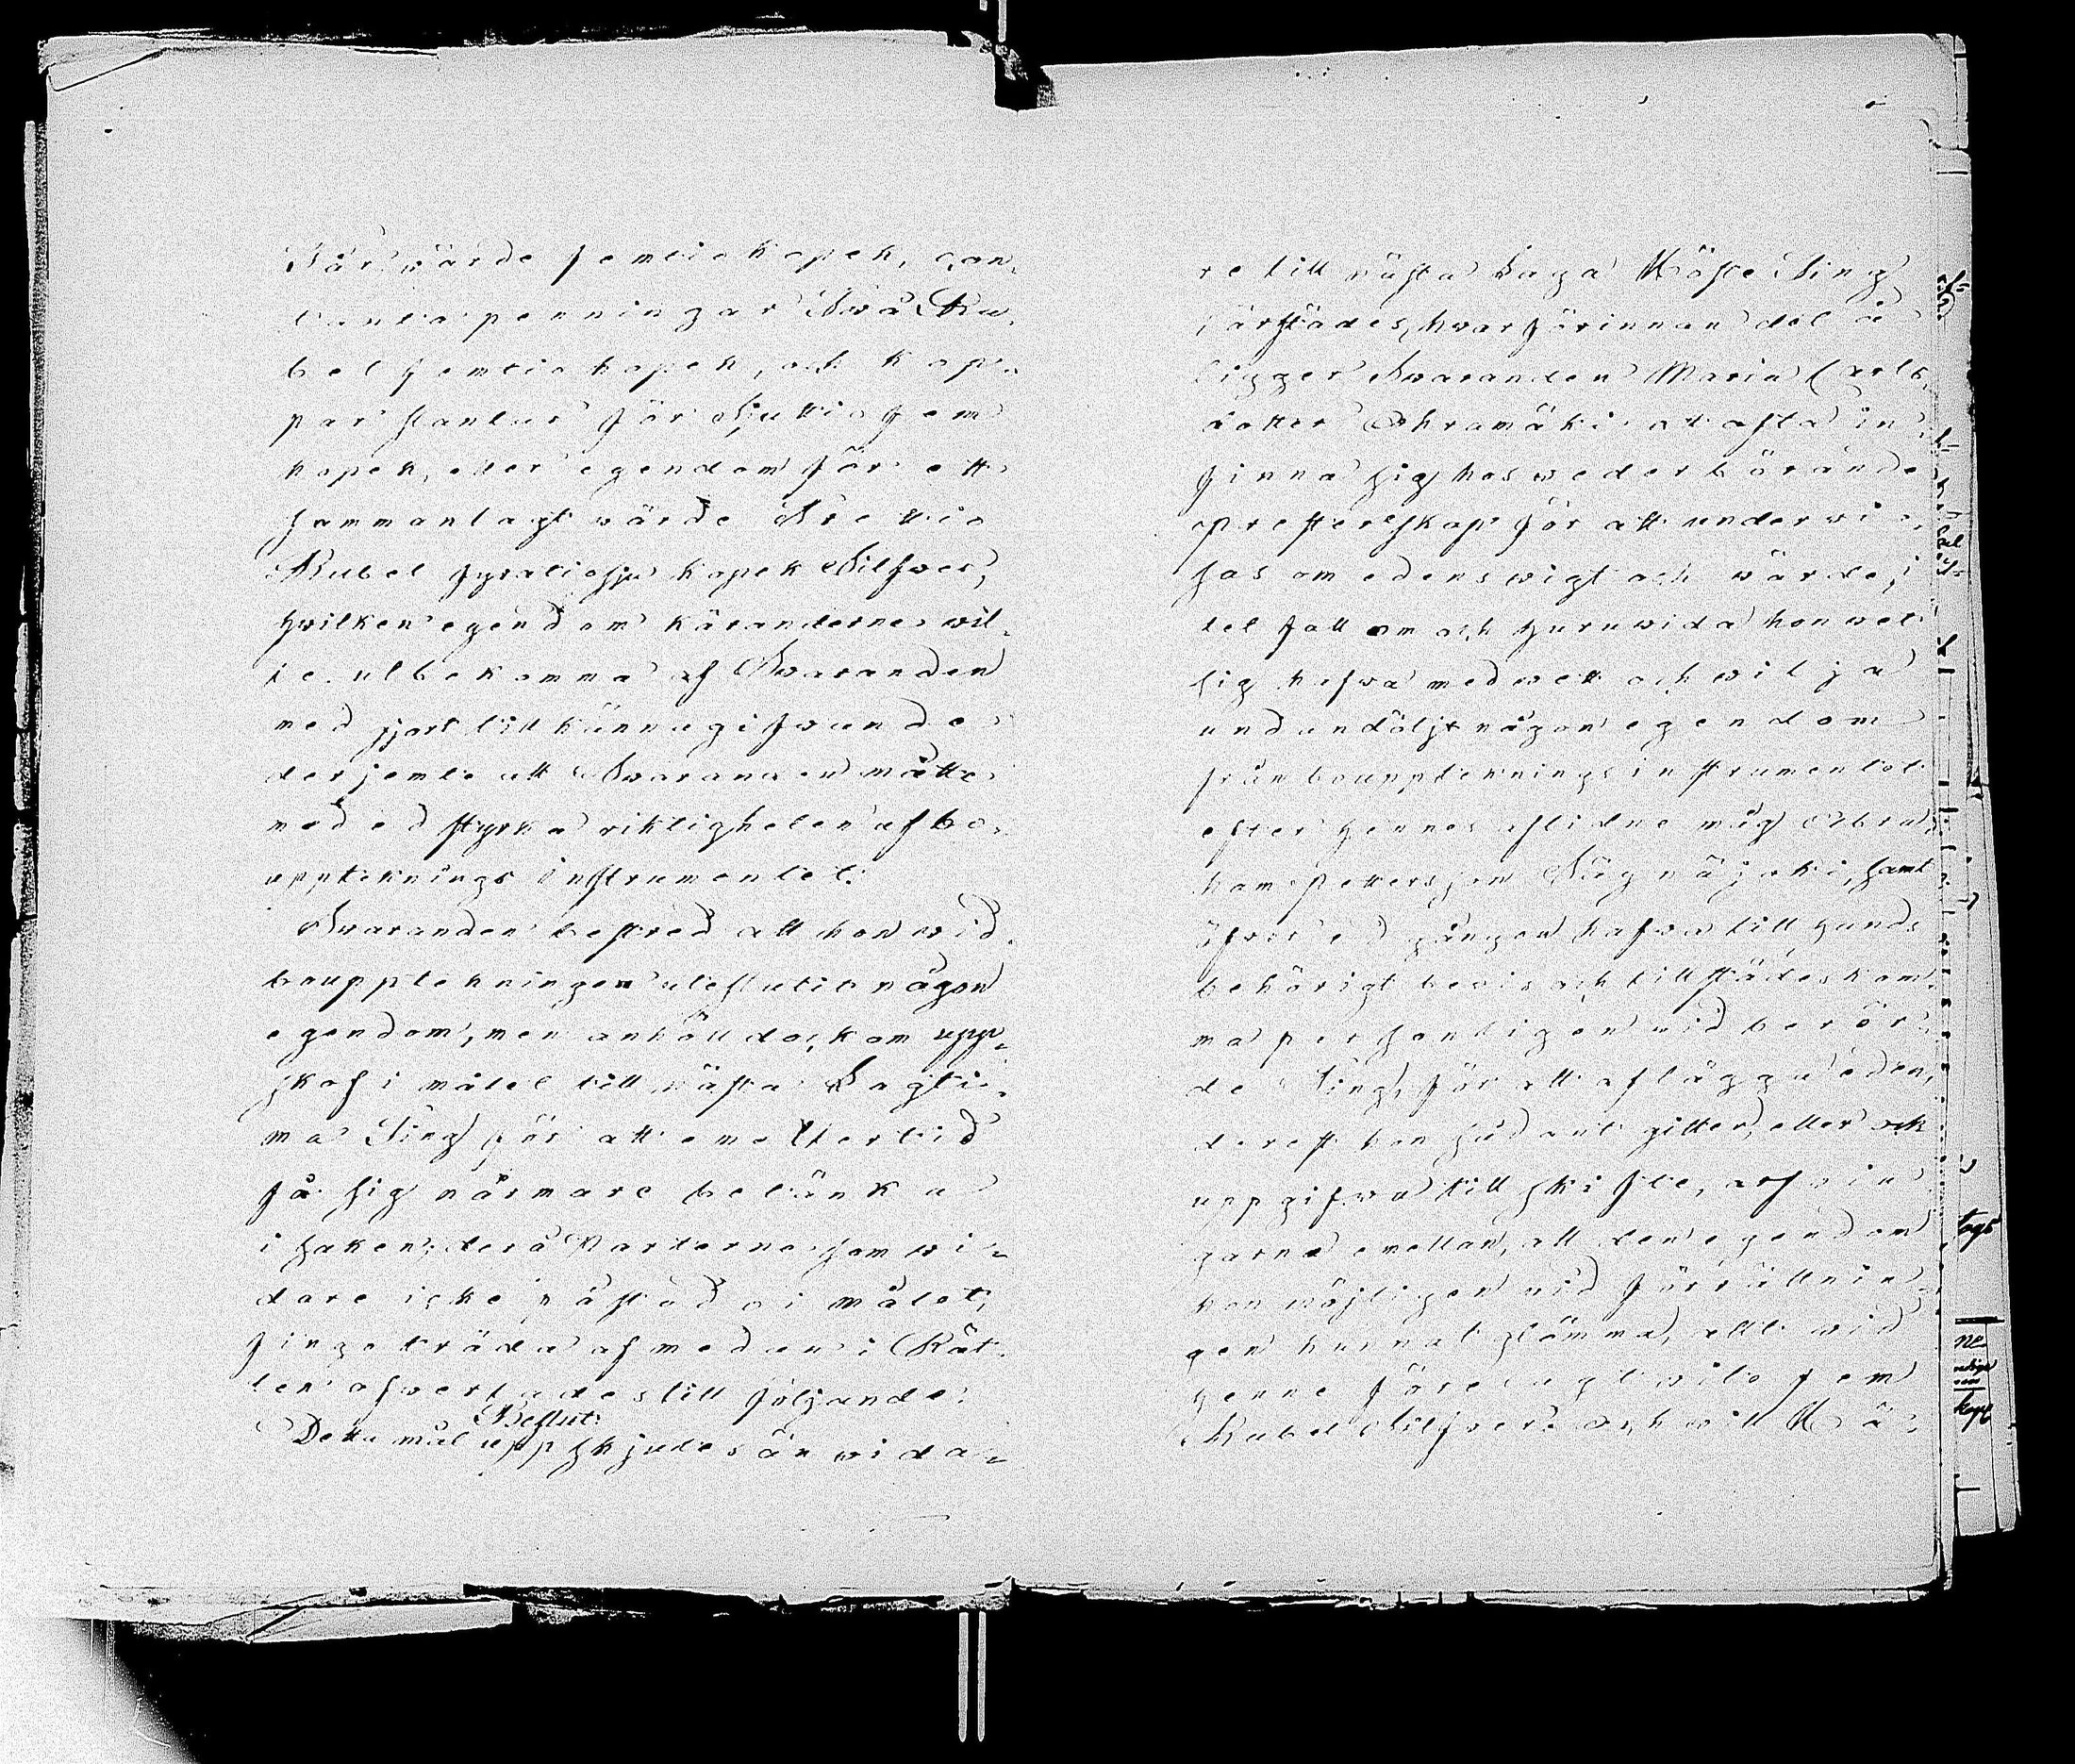 Får wärde femtio kopek, con¬
tanta penningar Två Ru¬
bel femtio kopek, och kop¬
par slantar för Sjuttio fem
kopek, eller egendom för ett
sammanlagt wärde Trettio
Rubel fyratiosju kopek Silfver,
hvilken egendom Käranderne wil¬
je utbekomma af Swaranden
med gjort tillkännagifwande
derjemte att Swaranden måtte
med ed styrka riktigheten af bo¬
uppteknings instrumentet.
Swaranden bestred att hon wid
bouppteckningen uteslutit någon
egendom, men anhöll dock om upp¬
skof i målet till nästa Lagti¬
ma Ting för att emellertid
få sig närmare betänka
i saken; derå Parterne som wi¬
dare icke påstodo i målet,
fingo träda af medan i Rät¬
ten öfwertades till följande:
Beslut:
Detta mål uppskjutes än wida¬
re till nästa Laga Höste Ting
härstädes, hvarförinnan det å¬
ligger Swaranden Maria Carls¬
dotter att ofta in¬
finna sig hos wederbörande
presterskap för att underwi¬
sas om edens wigt och wärde, i
det fall om och huruwida hon wet
sig hafwa med wett och wilja
undandöljt någon egendom
från bouppteknings instrumentet
efter hennes aflidne måg Abra¬
ham Pettersson samt
öfver edgången hafwa till hands
behörigt bewis och tillstädeskom¬
ma personligen wid berör¬
de Ting, för att aflägga eden,
derest hon sådant gitter, eller ock
uppgifwa till skifte, arfwin
garne emellan, all den egendom
hon möjligen wid förrättnin¬
gen kunnat glömma, allt wid
henne förelagt wite fem
Rubel Silfver. och will Hä¬